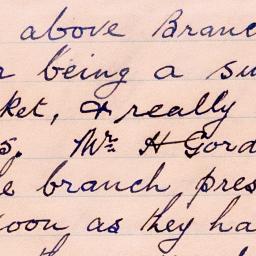 above Branc
r being a su
ket, & really
s. Mr. H Gord
e branch, pres
soon as they ha